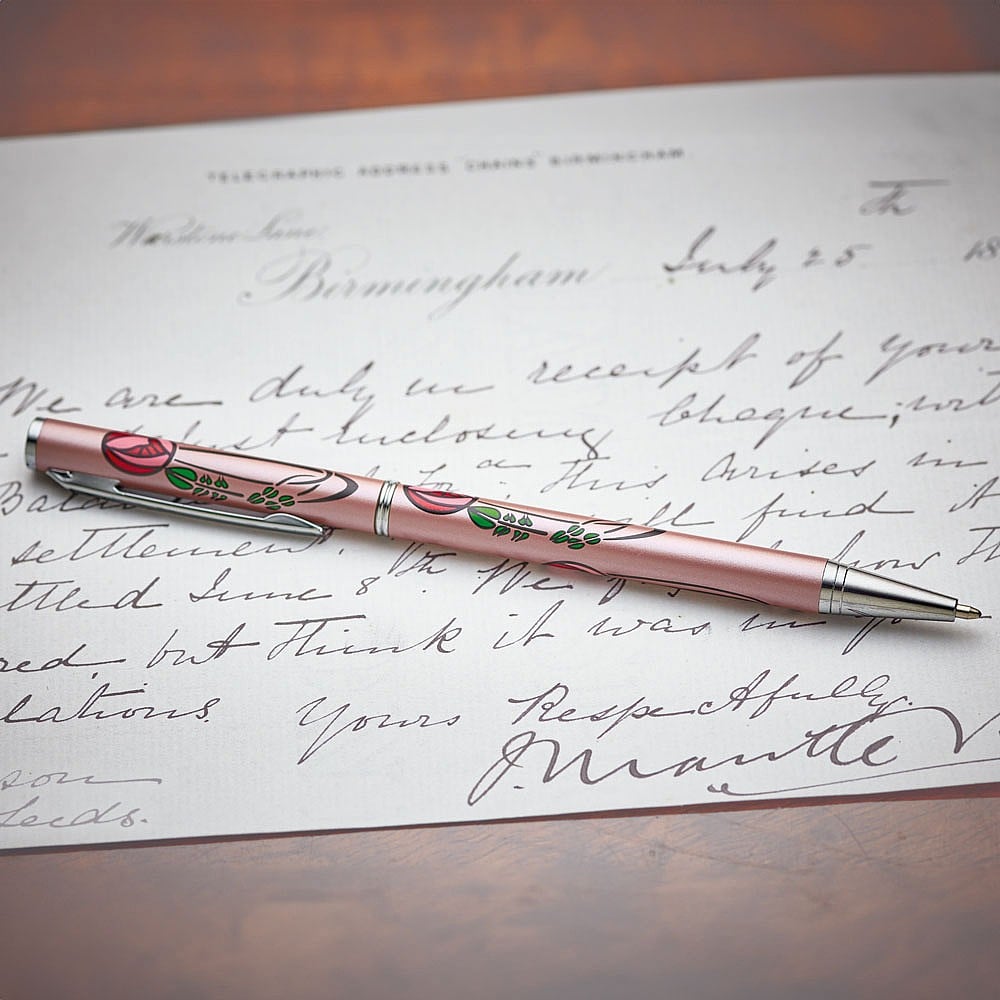 TELEGRAPHIC ADDRESS "CHAINS" BIRMINGHAM.
Warstone Lane
Birmingham July 25 th 18
We are duly in receipt of your
just enclosing Cheque, wit
this arises in
find it
settlement.
ttled June 8th We
red, but think it was in
lations. Yours Respectfully.
J. Mantle
son
Leeds.